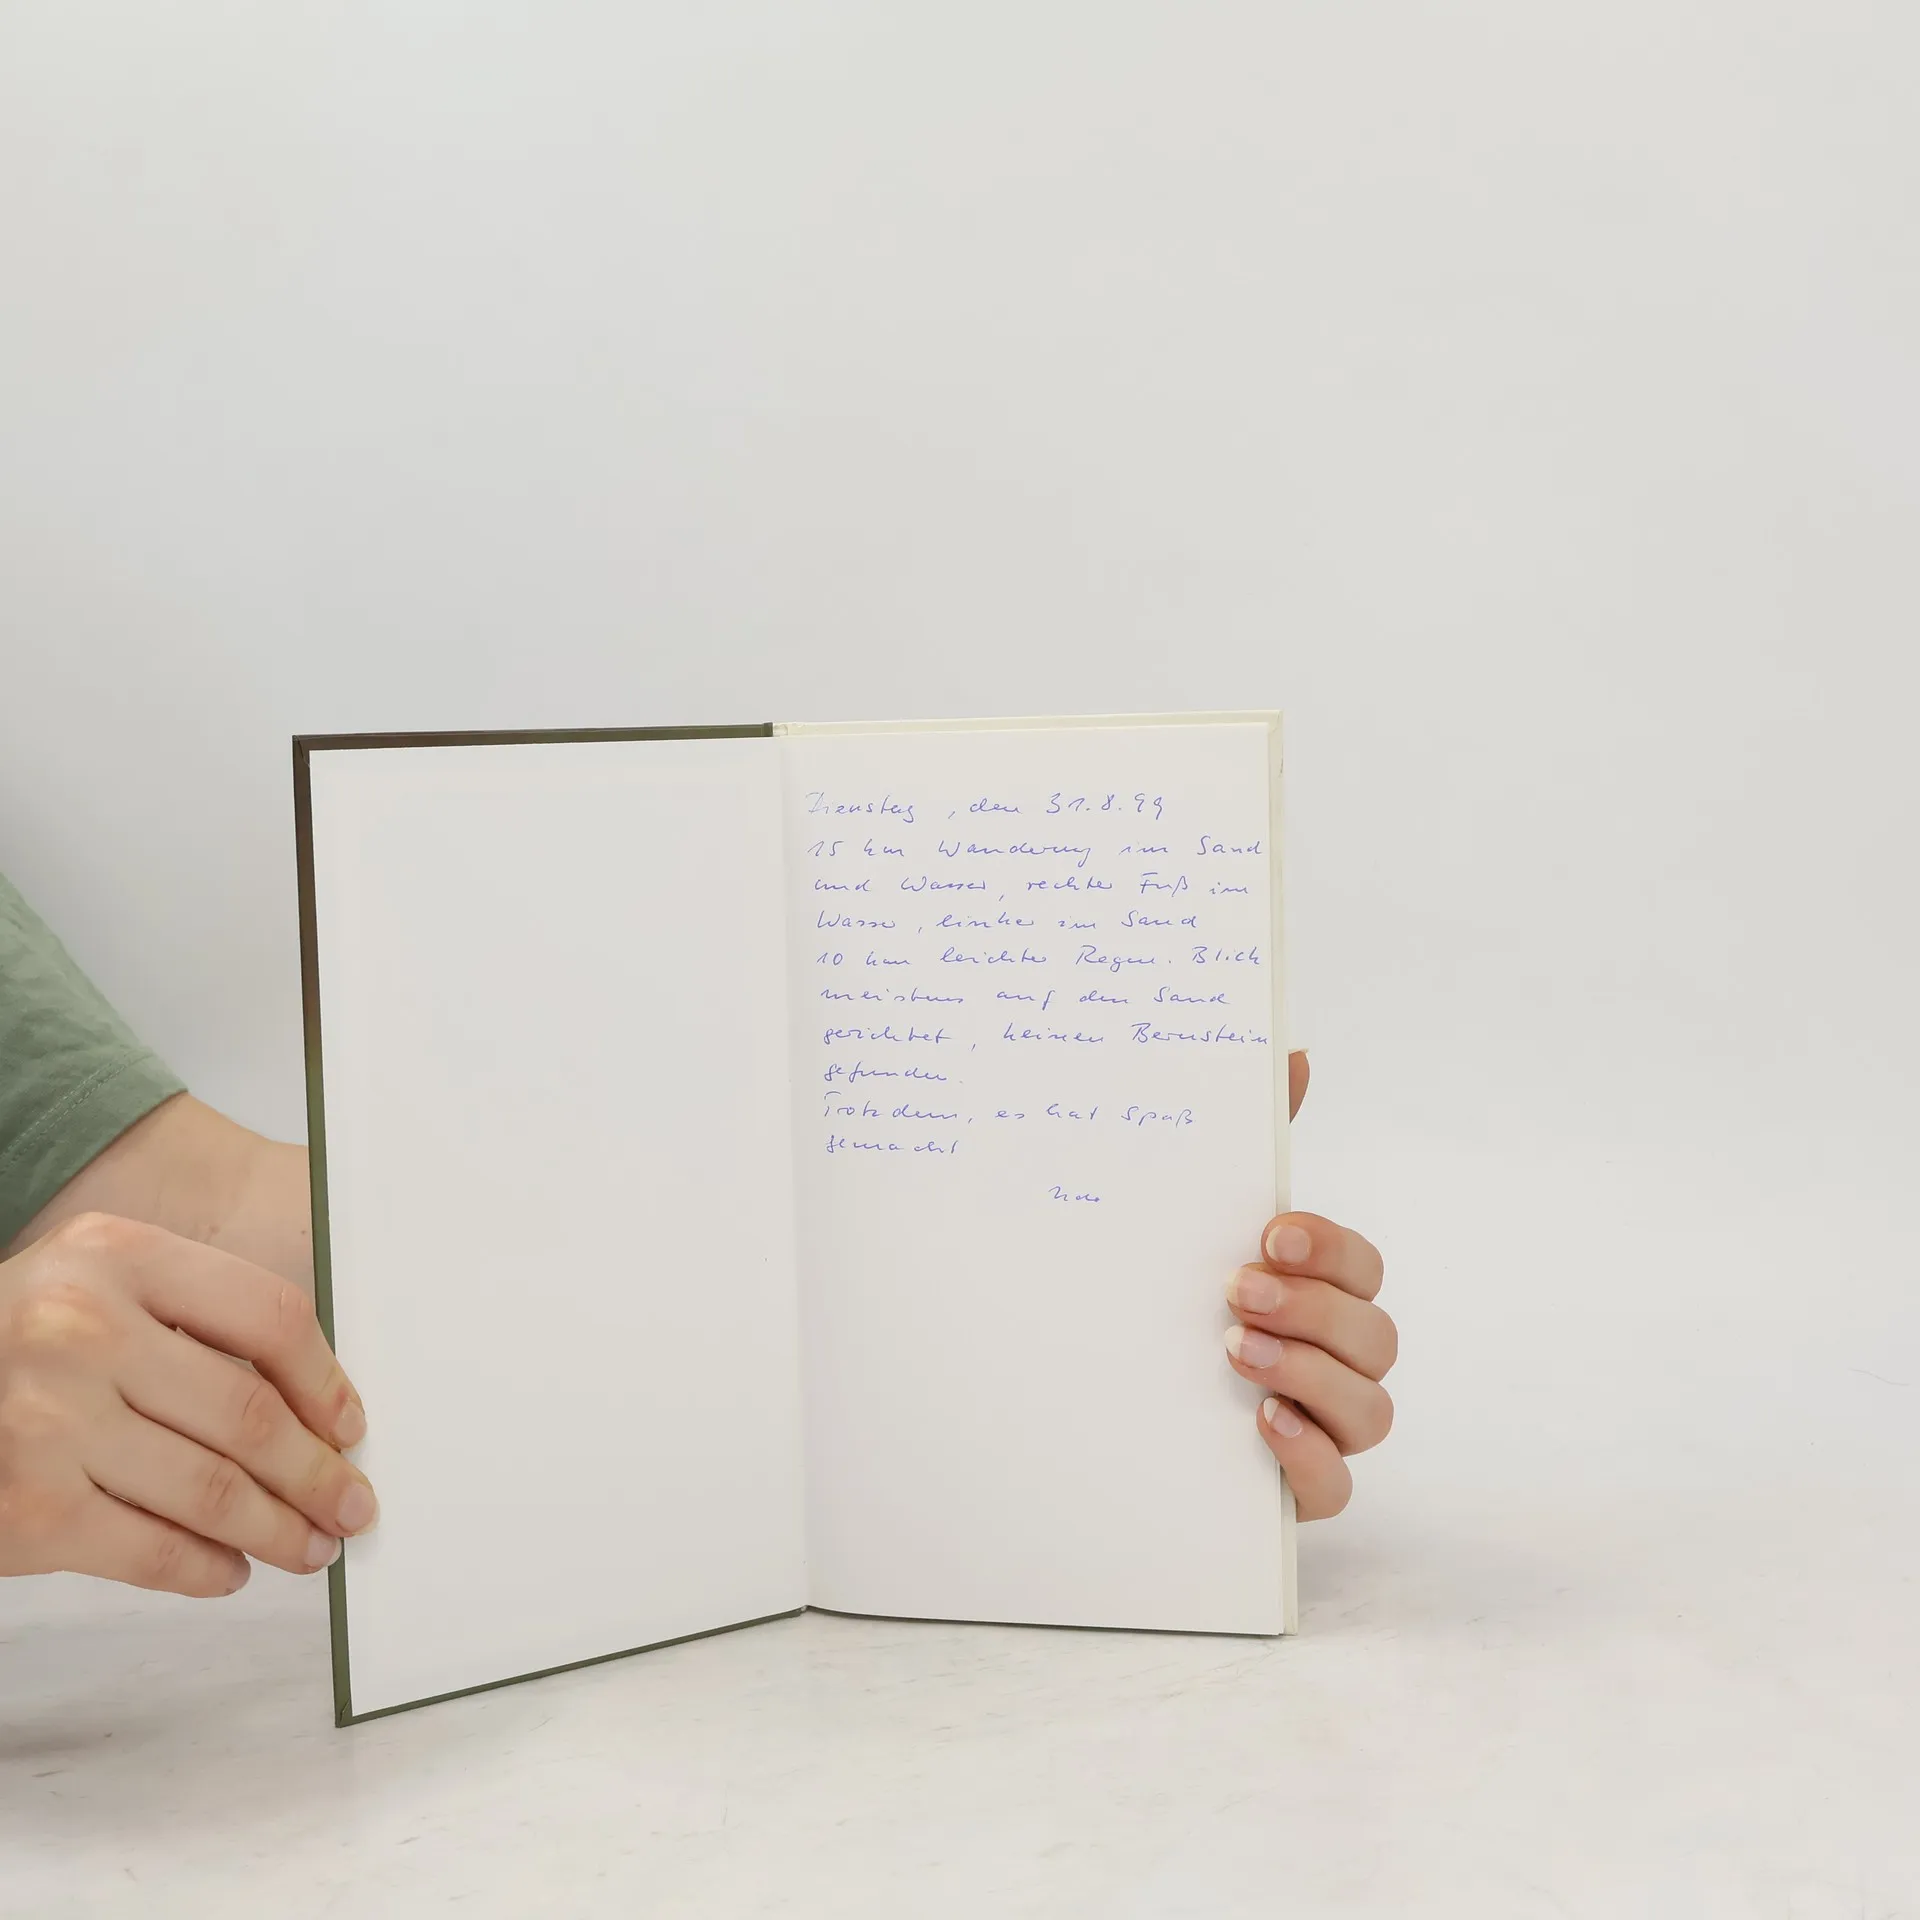 Dienstag, den 31.8.99
15 km Wanderung im Sand
und Wasser, rechter Fuß im
Wasser, linker im Sand
10 km leichter Regen. Blick
meistens auf den Sand
gerichtet, keinen Bernstein
gefunden.
Trotzdem, es hat Spaß
gemacht
Udo